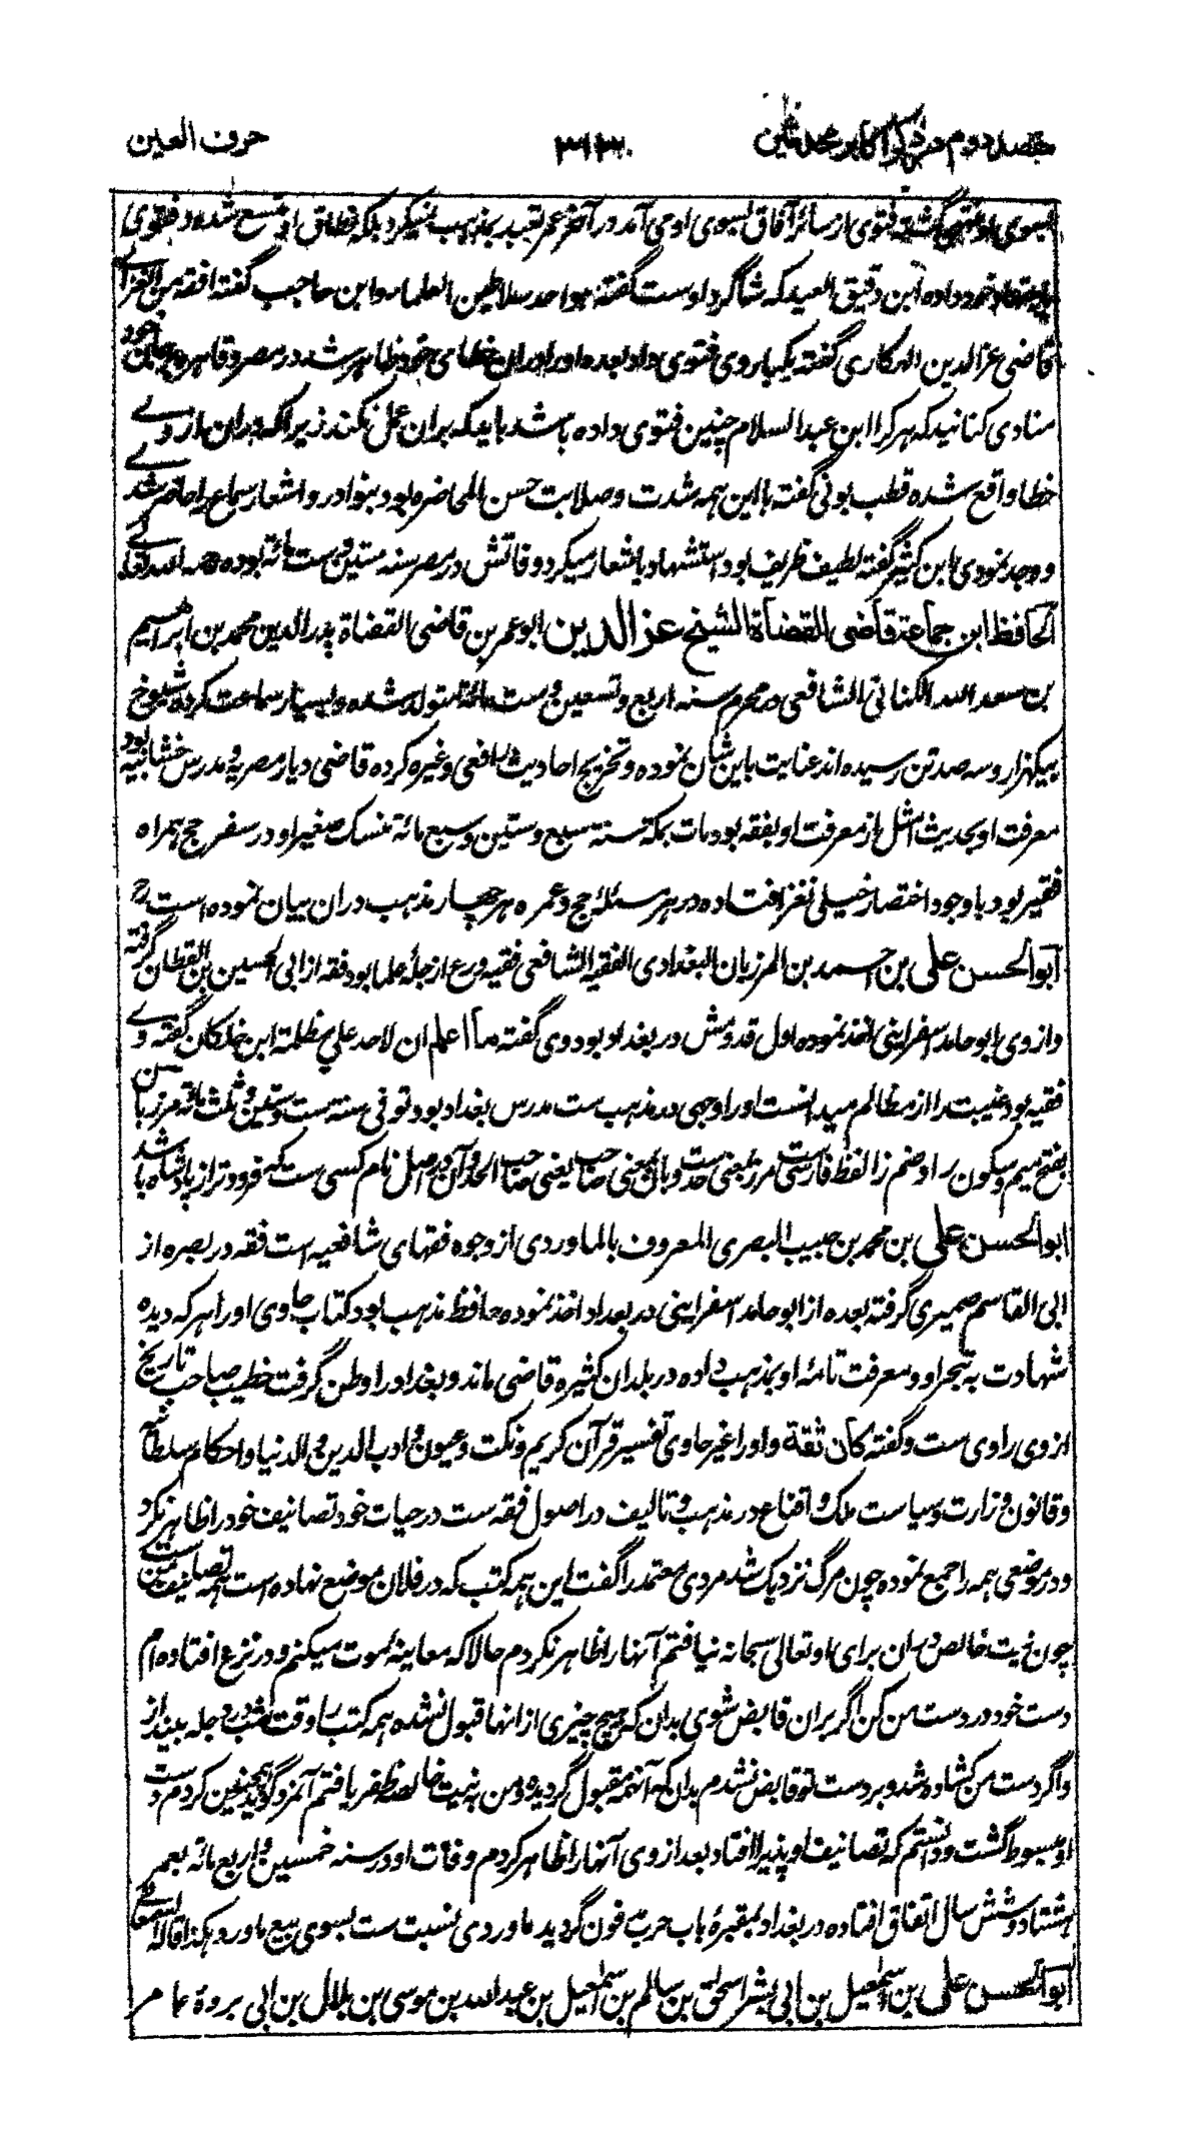 مقصد دوم در ذکر اکابر محدثین ۳۱۳ حرف العین
بسوی او منتهی گشته فتوی از سائر آفاق بسوی او می آمد در آخر عمر تقید بمذهب نمیکرد بلکه نطاق او متسع شده و فتوی
باجتهاد خود داده ابن دقیق العید که شاگرد اوست گفته هو احد سلاطین العلماء و ابن حاجب گفته افقه من الغزالی
قاضی عزالدین الهکاری گفته یکبار وی فتوی داد بعده او را دران خطای خود ظاهر شد در مصر و قاهره بر جان خود
منادی کنانید که هر کرا ابن عبدالسلام چنین فتوی داده باشد باید که بران عمل نکند زیرا که دران از وی
خطا واقع شده قطب یونی گفته با این همه شدت و صلابت حسن المحاضره بود بنوادر و اشعار سماع را حاضر شدی
و وجد نمودی ابن کثیر گفته لطیف ظریف بود استشهاد باشعار میکرد وفاتش در مصر سنه ستین و ست مائة بوده رحمه الله تعالی
الحافظ ابن جماعة قاضی القضاة الشیخ عزالدین ابو عمر بن قاضی القضاة بدرالدین محمد بن ابراهیم
بن سعد الله الکنانی الشافعی در محرم سنه اربع و تسعین و ست مائة متولد شده و بسیار سماعت کرده شیوخ
بیکهزار و سه صد تن رسیده اند عنایت باین شان نموده و تخریج احادیث رافعی و غیره کرده قاضی دیار مصریه و مدرس خشابیه بود
معرفت او بحدیث امثل از معرفت او بفقه بود مات بمکة سنة سبع و ستین و سبع مائة منسک صغیر او در سفر حج همراه
فقیر بود با وجود اختصار خیلی نغز افتاده در هر مسئله حج و عمره هر چهار مذهب دران بیان نموده است رح
ابوالحسن علی بن احمد بن المرزبان البغدادی الفقیه الشافعی فقیه ورع از جله علما بود فقه از ابی الحسین بن القطان گرفته
و از وی ابو حامد اسفراینی اخذ نموده اول قدومش در بغداد بود وی گفته ما اعلم ان لاحد علی مظلمة ابن خلکان گفته وی
فقیه بود غیبت را از مظالم میدانست او را وجهی در مذهب ست مدرس بغداد بود توفی سنة ست و ستین و ثلث مائة مرزبان
بفتح میم و سکون راء و ضم زا لفظ فارسیست مرز بمعنی حدست و بان بمعنی صاحب یعنی صاحب الحد و آن در اصل نام کسی ست که فروتر از پادشاه باشد
ابوالحسن علی بن محمد بن حبیب البصری المعروف بالماوردی از وجوه فقهای شافعیه است فقه در بصره از
ابی القاسم صمیری گرفته بعده از ابو حامد اسفراینی در بغداد اخذ نموده حافظ مذهب بود کتاب حاوی او را هر که دیده
شهادت به تبحر او و معرفت تامهٔ او بمذهب داده در بلدان کثیره قاضی ماند و بغداد را وطن گرفت خطیب صاحب تاریخ
از وی راوی ست و گفته کان ثقة و او را غیر حاوی تفسیر قرآن کریم و نکت و عیون و ادب الدین و الدنیا و احکام سلطانیه
و قانون وزارت و سیاست ملک و اقناع در مذهب و تالیف در اصول فقه ست در حیات خود تصانیف خود را ظاهر نکرد
و در موضعی همه را جمع نموده چون مرگ نزدیک شد مردی معتمد را گفت این همه کتب که در فلان موضع نهاده است همه تصانیف من ست
چون نیت خالص دران برای او تعالی سبحانه نیافتم آنها را ظاهر نکردم حالا که معاینه موت میکنم و در نزع افتاده ام
دست خود در دست من کن اگر بران قابض شوی بدان که هیچ چیزی از انها قبول نشده همه کتب را وقت شب در دجله بینداز
و اگر دست من کشاده شد و بر دست تو قابض نشدم بدان که آنهمه مقبول گردیده و من به نیت خالصه ظفر یافتم آنمرد گوید همچنین کردم دست
او مبسوط گشت و دانستم که تصانیف او پذیرا افتاد بعد از وی آنها را ظاهر کردم وفات او در سنه خمسین و اربع مائه بعمر
هشتاد و شش سال اتفاق افتاده در بغداد بمقبرهٔ باب حرب مدفون گردید ماوردی نسبت ست بسوی بیع ماورد هکذا قاله السمعانی
ابوالحسن علی بن اسمعیل بن ابی بشر اسحق بن سالم بن اسمعیل بن عبدالله بن موسی بن بلال بن ابی بردة عامر